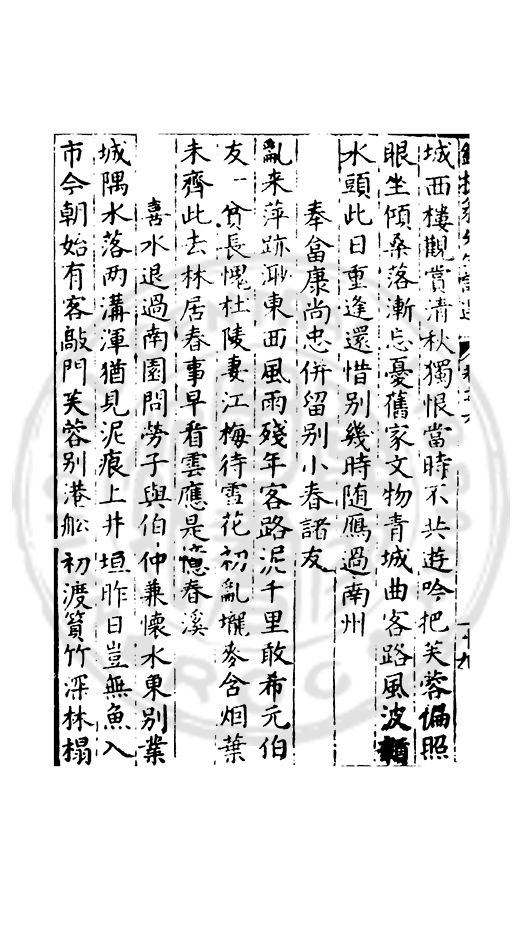 城西樓觀賞清秋獨恨當時不共遊吟把芙蓉偏照
眼坐傾桑落漸忘憂舊家文物青城曲客路風波
水頭此日重逢還惜別幾時随鴈過南州
奉畣康尚忠併留别小春諸友
亂来萍跡浙東西風雨殘年客路泥千里敢希元伯
友一貧長愧杜陵妻江梅待雪花初亂壠麥含烟葉
未齊此去林居春事早看雲應是憶春溪
喜水退過南園問勞子與伯仲兼懷水東别業
城隅水落两溝渾猶見泥痕上井垣昨日豈無魚入
市今朝始有客敲門芙蓉别港舩初渡篔竹深林榻